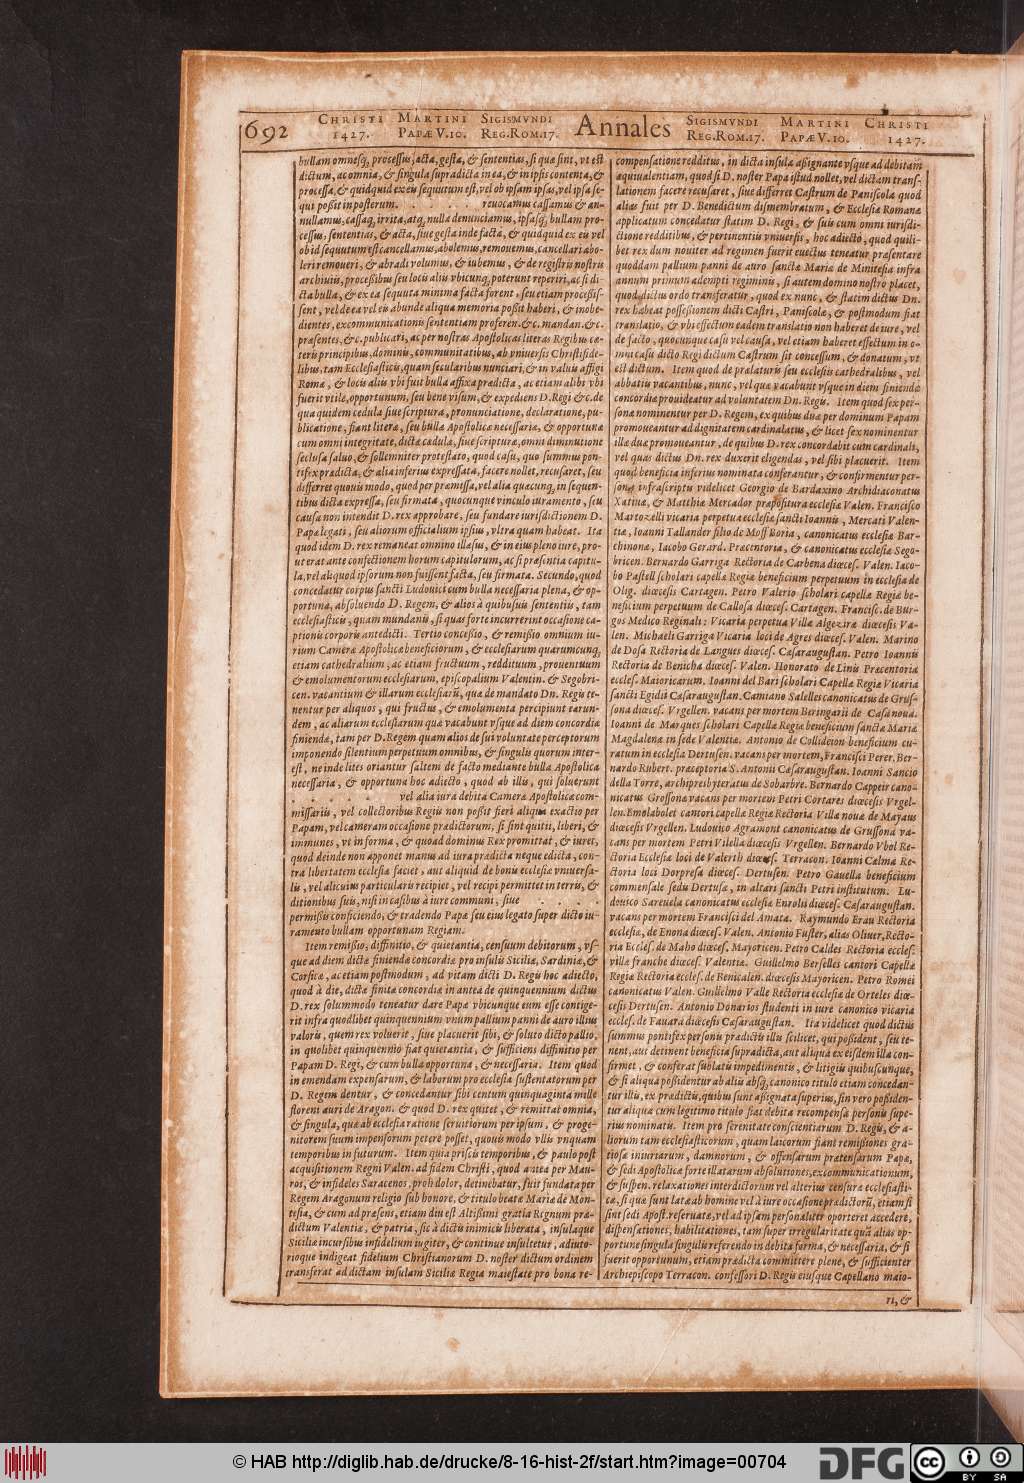 692 CHRISTI 1427. MARTINI PAPÆ V. 10. SIGISMVNDI REG. ROM. 17. Annales SIGISMVNDI REG. ROM. 17. MARTINI PAPÆ V. 10. CHRISTI 1427.
bullam omnesq́, processus, acta, gesta, & sententias, si quæ sint, vt est
dictum, ac omnia, & singula supradicta in ea, & in ipsis contenta, &
processa, & quidquid ex eis sequutum est, vel ob ipsam ipsas, vel ipsa se-
qui poßit in posterum. . . . . . . reuocamus cassamus & an-
nullamus, cassaq́, irrita, atq́, nulla denunciamus, ipsasq́, bullam pro-
cessus, sententias, & acta, siue gesta inde facta, & quidquid ex eis vel
ob id sequutum est cancellamus, abolemus, remouemus, cancellari abo-
leri remoueri, & abradi volumus, & iubemus, & de registris nostris
archiuiis, proceßibus seu locis aliis vbicunq́, poterunt reperiri, ac si di-
cta bulla, & ex ea sequuta minima facta forent, seu etiam proceßis-
sent, vel de ea vel eis abunde aliqua memoria poßit haberi, & inobe-
dientes, excommunicationis sententiam proferen. &c. mandan. &c.
præsentes, &c. publicari, ac per nostras Apostolicas literas Regibus cæ-
teris principibus, dominis, communitatibus, ab vniuersis Christi fide-
libus, tam Ecclesiasticis, quam secularibus nunciari, & in valuis affigi
Romæ, & locis aliis vbi fuit bulla affixa prædicta, ac etiam alibi vbi
fuerit vtile, opportunum, seu bene visum, & expediens D. Regi &c. de
qua quidem cedula siue scriptura, pronunciatione, declaratione, pu-
blicatione, fiant literæ, seu bullæ Apostolicæ necessariæ, & opportunæ
cum omni integritate, dictæ cædulæ, siue scripturæ, omni diminutione
seclusa saluo, & sollemniter protestato, quod casu, quo summus pon-
tifex prædicta, & alia inferius expressata, facere nollet, recusaret, seu
differret quouis modo, quod per præmissa, vel alia quæcunq́, in sequen-
tibus dicta expressa, seu firmata, quocunque vinculo iuramento, seu
causa non intendit D. rex approbare, seu fundare iurisdictionem D.
Papæ legati, seu aliorum officialium ipsius, vltra quam habeat. Ita
quod idem D. rex remaneat omnino illæsus, & in eius pleno iure, pro-
ut erat ante confectionem horum capitulorum, ac si præsentia capitu-
la, vel aliquod ipsorum non fuissent facta, seu firmata. Secundo, quod
concedatur corpus sancti Ludouici cum bulla necessaria plena, & op-
portuna, absoluendo D. Regem, & alios à quibusuis sententiis, tam
ecclesiasticis, quam mundanis, si quas forte incurrerint occasione ca-
ptionis corporis antedicti. Tertio concessio, & remißio omnium iu-
rium Cameræ Apostolicæ beneficiorum, & ecclesiarum quarumcunq́,
etiam cathedralium, ac etiam fructuum, reddituum, prouentuum
& emolumentorum ecclesiarum, episcopalium Valentin. & Segobri-
cen. vacantium & illarum ecclesiarũ, quæ de mandato Dn. Regis te-
nentur per aliquos, qui fructus, & emolumenta percipiunt earun-
dem, ac aliarum ecclesiarum quæ vacabunt vsque ad diem concordiæ
finiendæ, tam per D. Regem quam alios de sui voluntate perceptorum
imponendo silentium perpetuum omnibus, & singulis quorum inter-
est, ne inde lites oriantur saltem de facto mediante bulla Apostolica
necessaria, & opportuna hoc adiecto, quod ab illis, qui soluerunt
. . . . . . vel alia iura debita Cameræ Apostolicæ com-
missariis, vel collectoribus Regiis non poßit fieri aliqua exactio per
Papam, vel cameram occasione prædictorum, si sint quitii, liberi, &
immunes, vt in forma, & quoad dominus Rex promittat, & iuret,
quod deinde non apponet manus ad iura prædicta neque edicta, con-
tra libertatem ecclesiæ faciet, aut aliquid de bonis ecclesiæ vniuersa-
lis, vel alicuius particularis recipiet, vel recipi permittet in terris, &
ditionibus suis, nisi in casibus à iure communi, siue . . . .
permißis conficiendo, & tradendo Papæ seu eius legato super dicto iu-
ramento bullam opportunam Regiam.
Item remißio, diffinitio, & quietantia, censuum debitorum, vs-
que ad diem dictæ finiendæ concordiæ pro insulis Siciliæ, Sardiniæ, &
Corsicæ, ac etiam postmodum, ad vitam dicti D. Regis hoc adiecto,
quod à die, dictæ finitæ concordiæ in antea de quinquennium dictus
D. rex solummodo teneatur dare Papæ vbicunque eum esse contige-
rit infra quodlibet quinquennium vnum pallium panni de auro illius
valoris, quem rex voluerit, siue placuerit sibi, & soluto dicto pallio,
in quolibet quinquennio fiat quietantia, & sufficiens diffinitio per
Papam D. Regi, & cum bulla opportuna, & necessaria. Item quod
in emendam expensarum, & laborum pro ecclesia sustentatorum per
D. Regem dentur, & concedantur sibi centum quinquaginta mille
floreni auri de Aragon. & quod D. rex quitet, & remittat omnia,
& singula, quæ ab ecclesia ratione seruitiorum per ipsum, & proge-
nitorem suum impensorum petere posset, quouis modo vllis vnquam
temporibus in futurum. Item quia priscis temporibus, & paulo post
acquisitionem Regni Valen. ad fidem Christi, quod antea per Mau-
ros, & infideles Saracenos, proh dolor, detinebatur, fuit fundata per
Regem Aragonum religio sub honore, & titulo beatæ Mariæ de Mon-
tesia, & cum ad præsens, etiam diu est Altißimi gratia Regnum præ-
dictum Valentiæ, & patria, sic à dictis inimicis liberata, insulaque
Siciliæ incursibus infidelium iugiter, & continue insultetur, adiuto-
rioque indigeat fidelium Christianorum D. noster dictum ordinem
transferat ad dictam insulam Siciliæ Regia maiestate pro bona re-
compensatione redditus, in dicta insula aßignante vsque ad debitam
æquiualentiam, quod si D. noster Papa istud nollet, vel dictam trans-
lationem facere recusaret, siue differret Castrum de Paniscolæ quod
alias fuit per D. Benedictum dismembratum, & Ecclesiæ Romanæ
applicatum concedatur statim D. Regi, & suis cum omni iurisdi-
ctione redditibus, & pertinentiis vniuersis, hoc adiecto, quod quili-
bet rex dum nouiter ad regimen fuerit euectus teneatur præsentare
quoddam pallium panni de auro sanctæ Mariæ de Mintesia infra
annum primum adempti regiminis, si autem domino nostro placet,
quod dictus ordo transferatur, quod ex nunc, & statim dictus Dn.
rex habeat possessionem dicti Castri, Paniscolæ, & postmodum fiat
translatio, & vbi effectum eadem translatio non haberet de iure, vel
de facto, quocunque casu vel causa, vel etiam haberet effectum in o-
mni casu dicto Regi dictum Castrum sit concessum, & donatum, vt
est dictum. Item quod de prælaturis seu ecclesiis cathedralibus, vel
abbatiis vacantibus, nunc, vel quæ vacabunt vsque in diem finiendæ
concordiæ prouideatur ad voluntatem Dn. Regis. Item quod sex per-
sonæ nominentur per D. Regem, ex quibus duæ per dominum Papam
promoueantur ad dignitatem cardinalatus, & licet sex nominentur
illæ duæ promoueantur, de quibus D. rex concordabit cum cardinali,
vel quas dictus Dn. rex duxerit eligendas, vel sibi placuerit. Item
quod beneficia inferius nominata conferantur, & confirmentur per-
sonis infrascriptis videlicet Georgio de Bardaxino Archidiaconatus
Xatiuæ, & Matthiæ Mercador præpositura ecclesiæ Valen. Francisco
Martozelli vicaria perpetua ecclesiæ sancti Ioannis, Mercati Valen-
tiæ, Ioanni Tallander filio de Moss Boria, canonicatus ecclesiæ Bar-
chinonæ, Iacobo Gerard. Præcentoria, & canonicatus ecclesiæ Sego-
bricen. Bernardo Garriga Rectoria de Carbena diœces. Valen. Iaco-
bo Pastell scholari capellæ Regiæ beneficium perpetuum in ecclesia de
Olig. diœcesis Cartagen. Petro Valerio scholari capellæ Regiæ be-
neficium perpetuum de Callosa diœces. Cartagen. Francisc. de Bur-
gos Medico Reginali: Vicaria perpetua Villæ Algeziræ diœcesis Va-
len. Michaeli Garriga Vicaria loci de Agres diœces. Valen. Marino
de Dosa Rectoria de Langues diœces. Cæsaraugustan. Petro Ioannis
Rectoria de Benicha diœces. Valen. Honorato de Linis Præcentoria
eccles. Maioricarum. Ioanni del Bari scholari Capellæ Regiæ Vicaria
sancti Egidii Cæsaraugustan. Camiano Salelles canonicatus de Grus-
sona diœces. Vrgellen. vacans per mortem Beringarii de Casa noua.
Ioanni de Marques scholari Capellæ Regiæ beneficium sanctæ Mariæ
Magdalenæ in sede Valentiæ. Antonio de Collideion beneficium cu-
ratum in ecclesia Dertusen. vacans per mortem, Francisci Perer. Ber-
nardo Rubert. præceptoria S. Antonii Cæsaraugustan. Ioanni Sancio
della Torre, archipresbyteratus de Sobarbre. Bernardo Cappeir cano-
nicatus Grossona vacans per mortem Petri Cortares diœcesis Vrgel-
len. Emelabolet cantori capellæ Regiæ Rectoria Villæ nouæ de Mayaus
diœcesis Vrgellen. Ludouico Agramont canonicatus de Grussona va-
cans per mortem Petri Vilella diœcesis Vrgellen. Bernardo Vbol Re-
ctoria Ecclesiæ loci de Valerth diœces. Terracon. Ioanni Calma Re-
ctoria loci Dorpesa diœces. Dertusen. Petro Gauella beneficium
commensale sedis Dertusæ, in altari sancti Petri institutum. Lu-
douico Sareuela canonicatus ecclesiæ Enrolis diœces. Cæsaraugustan.
vacans per mortem Francisci del Amata. Raymundo Erau Rectoria
ecclesiæ, de Enona diœces. Valen. Antonio Fuster, alias Oliuer, Recto-
ria Eccles. de Maho diœces. Mayoricen. Petro Caldes Rectoria eccles.
villæ franche diœces. Valentiæ. Guilielmo Berselles cantori Capellæ
Regiæ Rectoria eccles. de Benicalen. diœcesis Mayoricen. Petro Romei
canonicatus Valen. Guilielmo Valle Rectoria ecclesiæ de Orteles diœ-
cesis Dertusen. Antonio Donarios studenti in iure canonico vicaria
eccles. de Fauara diœcesis Cæsaraugustan. Ita videlicet quod dictus
summus pontifex personis prædictis illis scilicet, qui poßident, seu te-
nent, aut detinent beneficia supradicta, aut aliqua ex eisdem illa con-
firmet, & conferat sublatis impedimentis, & litigiis quibuscunque,
& si aliqua poßidentur ab aliis absq́, canonico titulo etiam concedan-
tur illis, ex prædictis, quibus sunt aßignata superius, sin vero poßiden-
tur aliqua cum legitimo titulo fiat debita recompensa personis supe-
rius nominatis. Item pro serenitate conscientiarum D. Regis, & a-
liorum tam ecclesiasticorum, quam laicorum fiant remißiones gra-
tiosæ iniuriarum, damnorum, & offensarum prætensarum Papæ,
& sedi Apostolicæ forte illatarum absolutiones, excommunicationum,
& suspen. relaxationes interdictorum vel alterius censuræ ecclesiasti-
cæ, si quæ sunt latæ ab homine vel à iure occasione prædictorũ, etiam si
sint sedi Apost. reseruatæ, vel ad ipsam personaliter oporteret accedere,
dispensationes, habilitationes, tam super irregularitate quã alias op-
portune singula singulis referendo in debita forma, & necessaria, & si
fuerit opportunum, etiam prædicta committere plene, & sufficienter
Archiepiscopo Terracon. confessori D. Regis eiusque Capellano maio-
ri, &
© HAB http://diglib.hab.de/drucke/8-16-hist-2f/start.htm?image=00704
DFG
cc BY SA